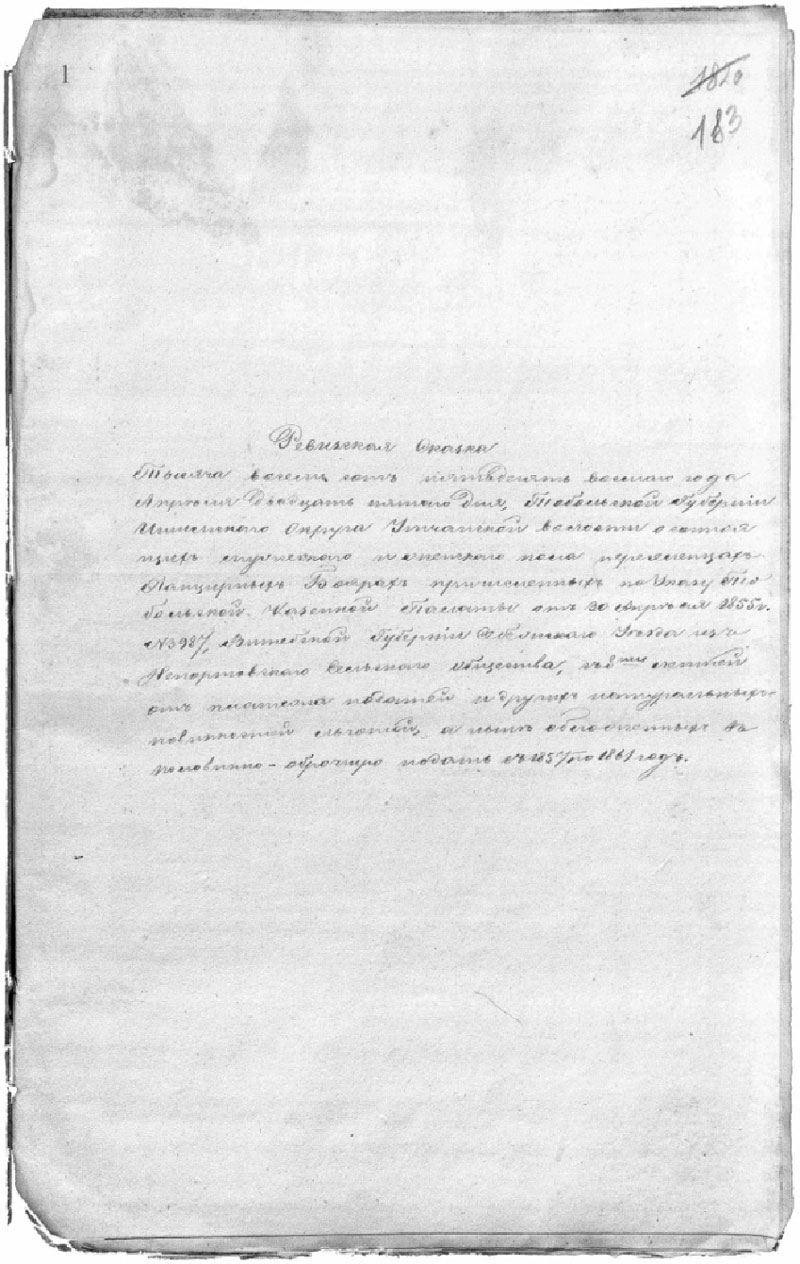 1
1820
183
Ревизская Сказка
Тысяча восемь сотъ пятьдесятъ восьмаго года
Апрѣля Двадцать пятаго дня, Тобольской Губерніи
Ишимскаго Округа Утчанской волости о состоя
щихъ мужескаго и женскаго пола переселенцахъ
Панцирныхъ Боярахъ причисленныхъ по Указу То
больской Казенной Палаты отъ 30 Апрѣля 1855 г.
№ 3987, Витебской Губерніи Себежскаго Уѣзда изъ
Сельскаго общества, съ 8ми лѣтней
отъ платежа податей и другихъ натуральныхъ
повинностей льготой, а нынѣ обложенныхъ въ
половинно-оброчную подать съ 1857 по 1861 годъ.